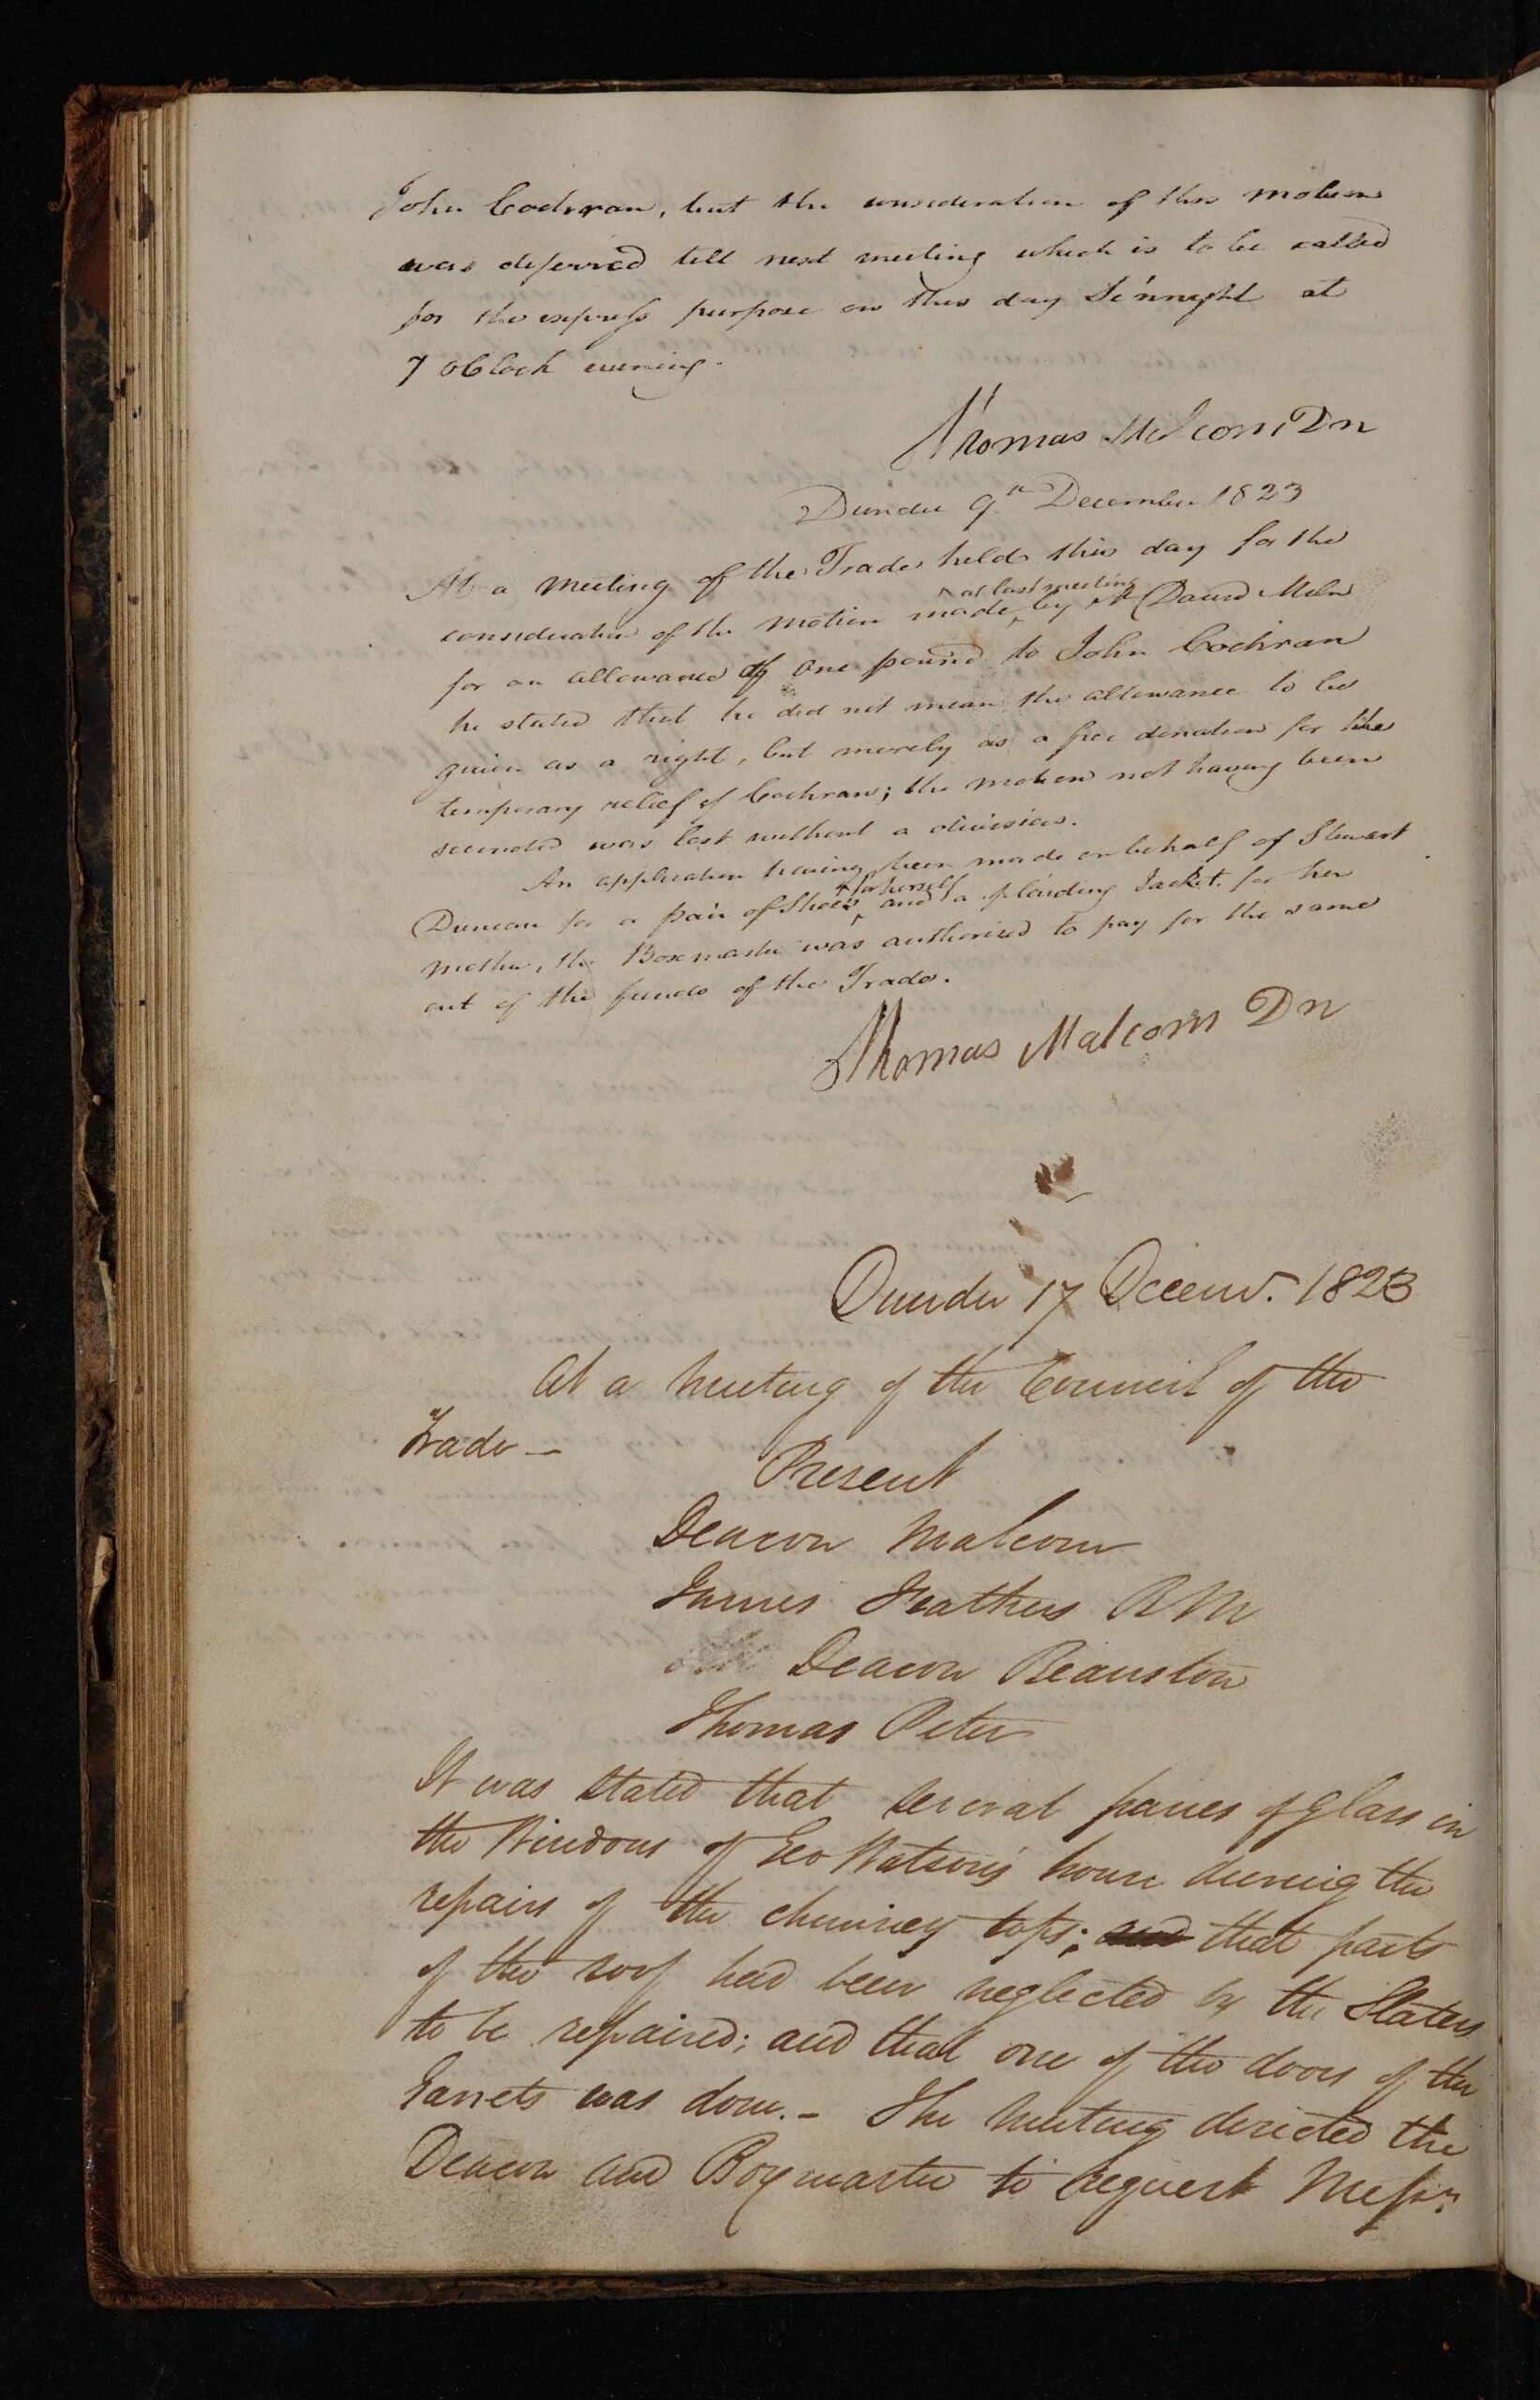 John Cochran, but the consideration of this motion
was deferred till next meeting which is to be called
for the express purpose on this day Se'nnight at
7 oClock evening.
Thomas Malcom Dn
Dundee 9th December 1823
At a meeting of the Trade held this day for the
consideration of the motion made ^at last meeting by David Miln
for an allowance of one pound to John Cochran
he stated that he did not mean the allowance to be
given as a right, but merely as a free donation for the
temporary relief of Cochran; the motion not having been
seconded was lost without a division.
An application having been made on behalf of Stewart
Duncan for a pair of Shoes ^for herself and a plaiding Jacket for her
mother, the Boxmaster was authorised to pay for the same
out of the funds of the Trade.
Thomas Malcom Dn
Dundee 17 Decemr. 1823
At a Meeting of the Council of the
Trade —
Present
Deacon Malcom
James Feathers BM
Deacon Beanston
Thomas Peter
It was stated that several panes of glass in
the Windows of Geo Watson's house during the
repairs of the chimney tops; and that parts
of the roof had been neglected by the Slaters
to be repaired; and that one of the doors of the
Garrets was done. - The Meeting directed the
Deacon and Boxmaster to request Messrs.